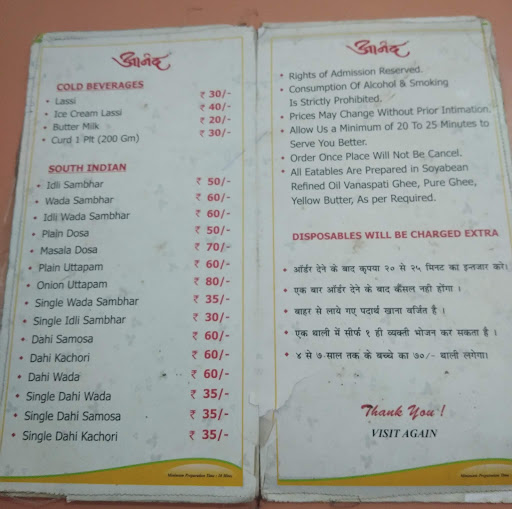 आनंद
COLD BEVERAGES
• Lassi ₹ 30/-
• Ice Cream Lassi ₹ 40/-
• Butter Milk ₹ 20/-
• Curd 1 Plt (200 Gm) ₹ 30/-
SOUTH INDIAN
• Idli Sambhar ₹ 50/-
• Wada Sambhar ₹ 60/-
• Idli Wada Sambhar ₹ 60/-
• Plain Dosa ₹ 50/-
• Masala Dosa ₹ 70/-
• Plain Uttapam ₹ 60/-
• Onion Uttapam ₹ 80/-
• Single Wada Sambhar ₹ 35/-
• Single Idli Sambhar ₹ 30/-
• Dahi Samosa ₹ 60/-
• Dahi Kachori ₹ 60/-
• Dahi Wada ₹ 60/-
• Single Dahi Wada ₹ 35/-
• Single Dahi Samosa ₹ 35/-
• Single Dahi Kachori ₹ 35/-
आनंद
• Rights of Admission Reserved.
• Consumption Of Alcohol & Smoking
Is Strictly Prohibited.
• Prices May Change Without Prior Intimation.
• Allow Us a Minimum of 20 To 25 Minutes to
Serve You Better.
• Order Once Place Will Not Be Cancel.
• All Eatables Are Prepared in Soyabean
Refined Oil Vanaspati Ghee, Pure Ghee,
Yellow Butter, As per Required.
DISPOSABLES WILL BE CHARGED EXTRA
• ऑर्डर देने के बाद कृपया २० से २५ मिनट का इन्तजार करे।
• एक बार ऑर्डर देने के बाद कैंसल नही होंगा ।
• बाहर से लाये गए पदार्थ खाना वर्जित है ।
• एक थाली में सीर्फ १ ही व्यक्ती भोजन कर सकता है ।
• ४ से ७-साल तक के बच्चे का ७०/- थाली लगेगा।
Thank You !
VISIT AGAIN